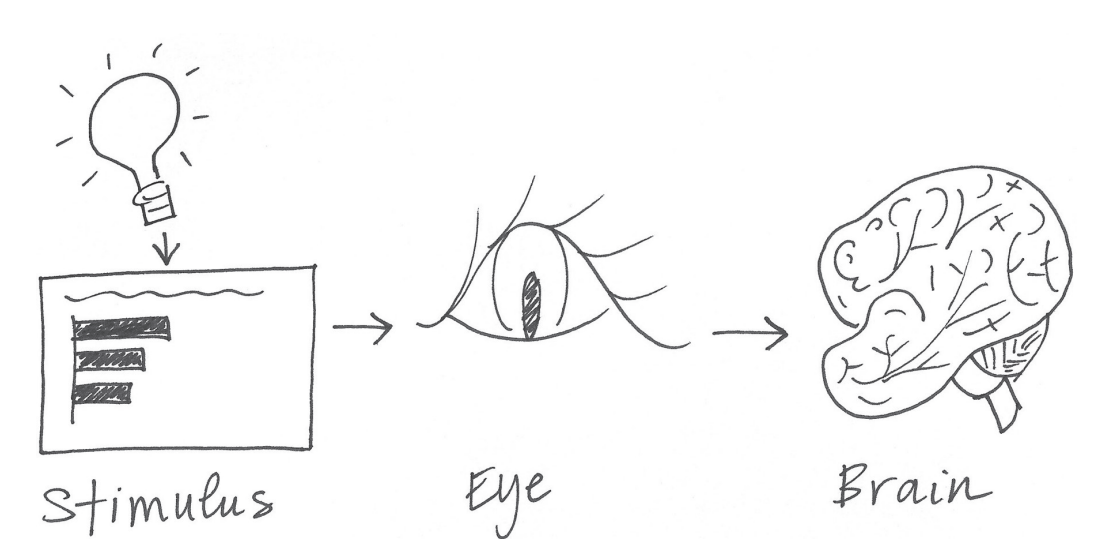 Stimulus
Eye
Brain